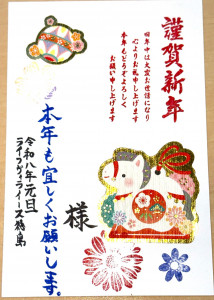 謹賀新年
旧年中は大変お世話になり
心よりお礼申し上げます
本年もどうぞよろしく
お願い申し上げます
様
本年も宜しくお願いします。
令和八年元旦